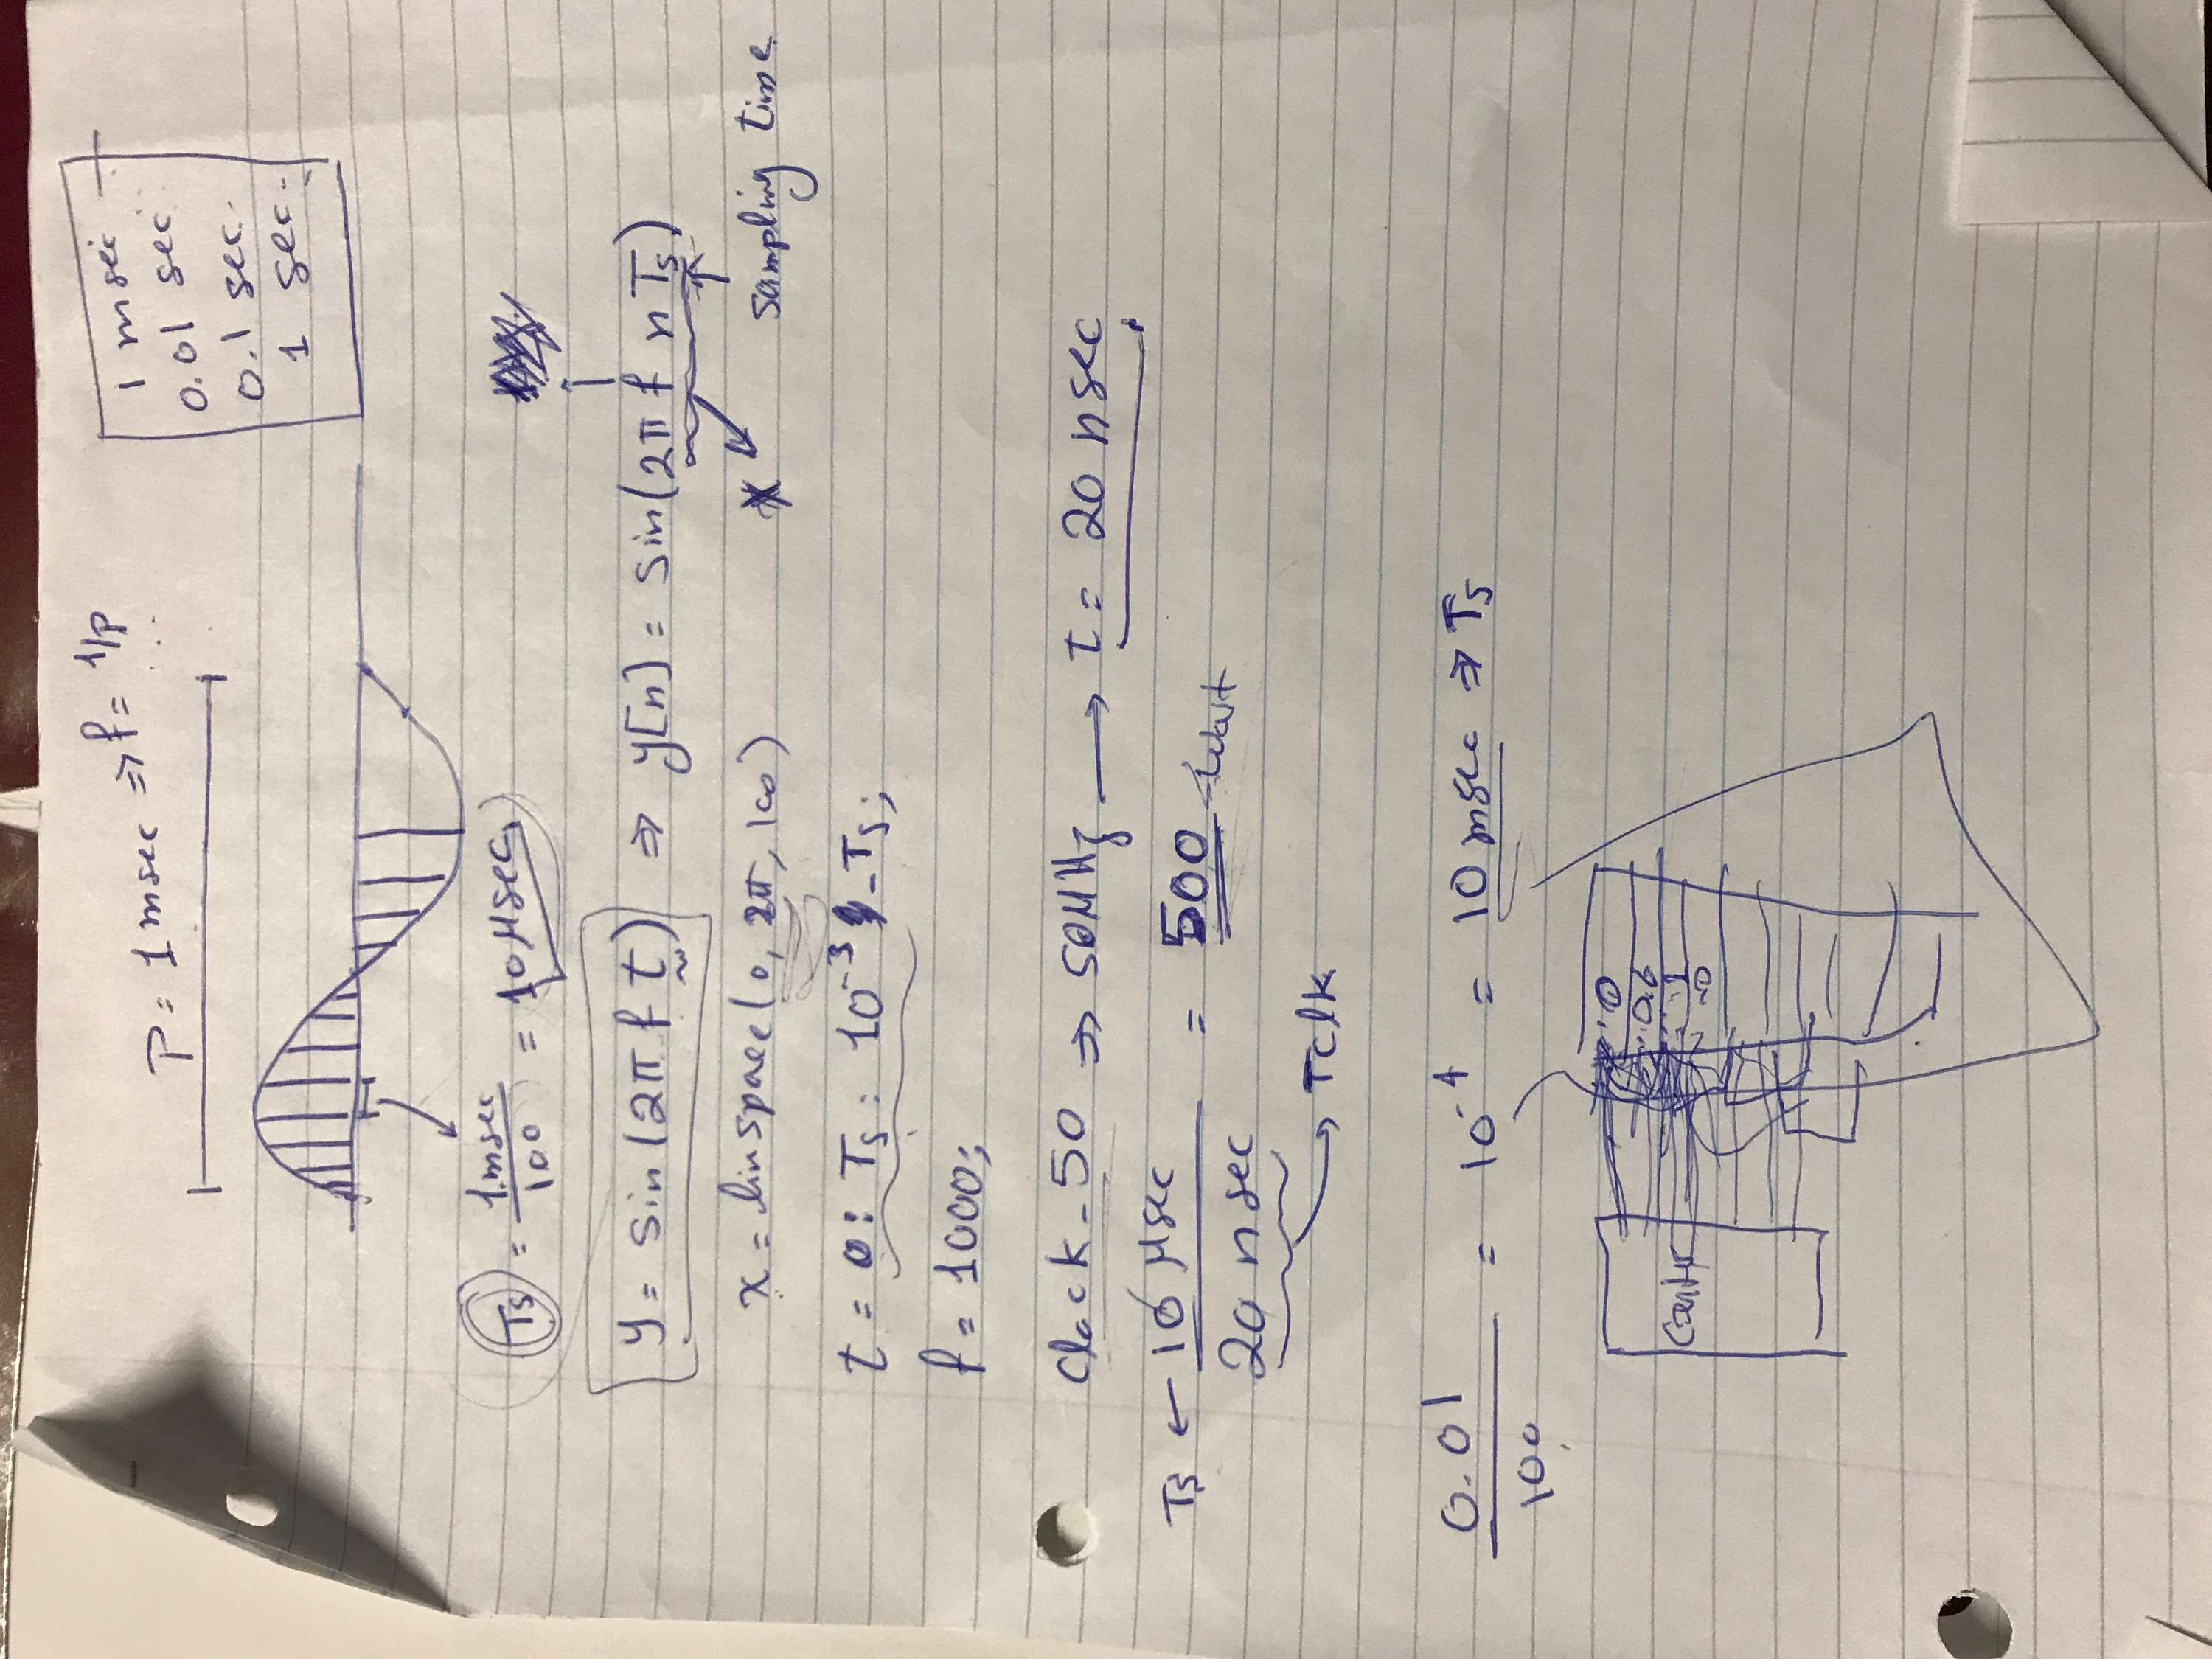 P = 1 msec ⇒ f = 1/p
1 msec
0.01 sec
0.1 sec.
1 sec.
Ts = 1 msec / 100 = 10 μsec
y = sin(2π f t) ⇒ y[n] = sin(2π f n Ts)
x = linspace(0, 2π, 100)
sampling time
t = 0 : Ts : 10^-3 - Ts;
f = 1000;
Clock_50 ⇒ 50MHz → t = 20 nsec
Ts ← 10 μsec / 20 nsec = 500
Tclk
0.01 / 100 = 10^-4 = 10 msec ⇒ Ts
0
0.6
1